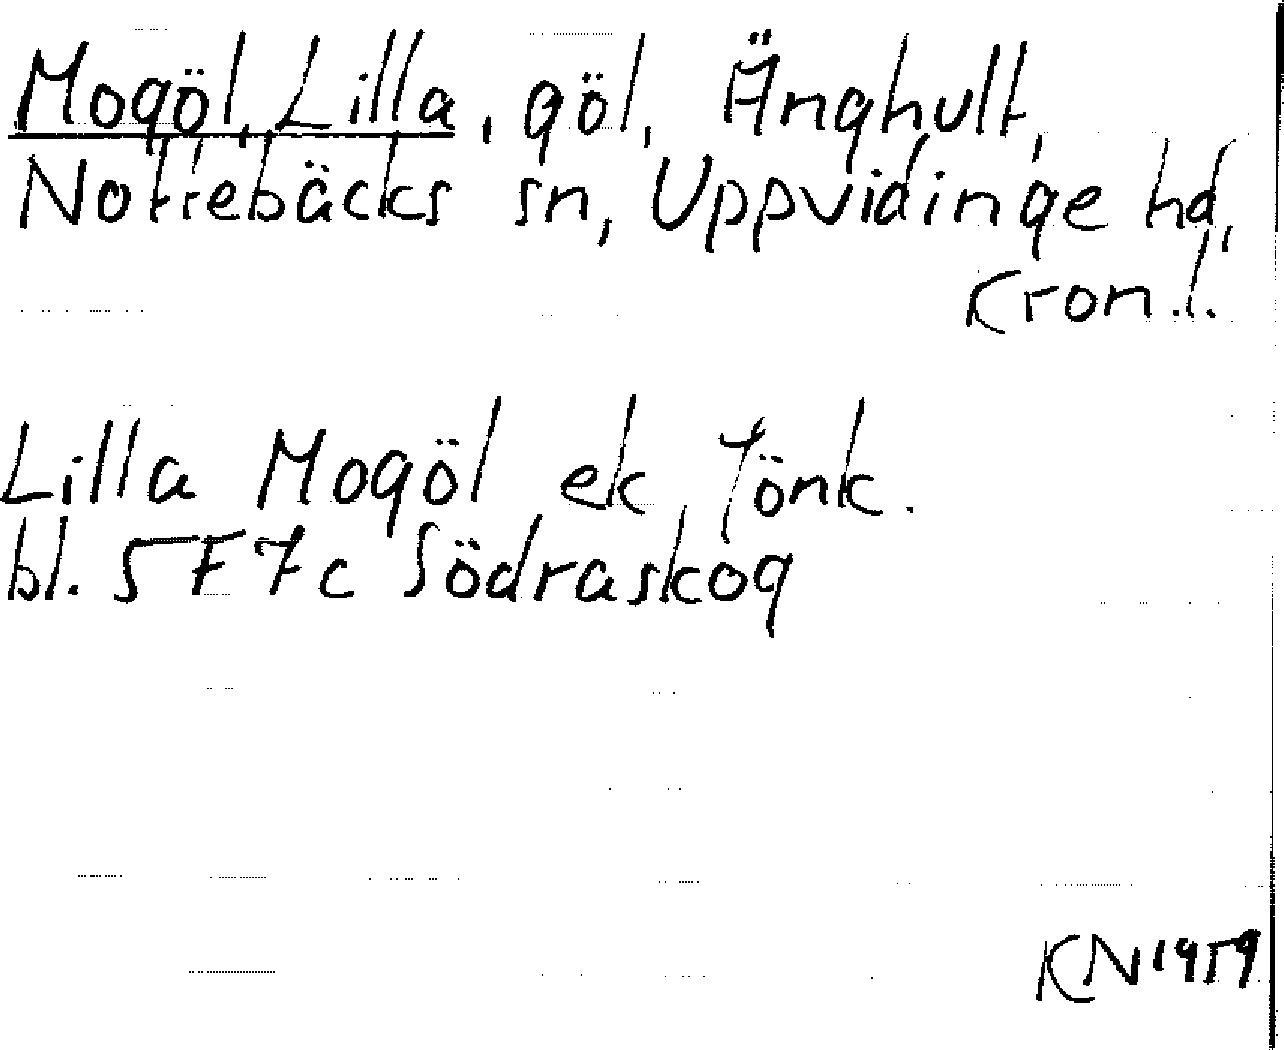 Mogöl, Lilla, göl, Änghult,
Nottebäcks sn, Uppvidinge hd,
Kron.l.
Lilla Mogöl ek Jönk.
bl. 5F7c Södraskog
KN 1959